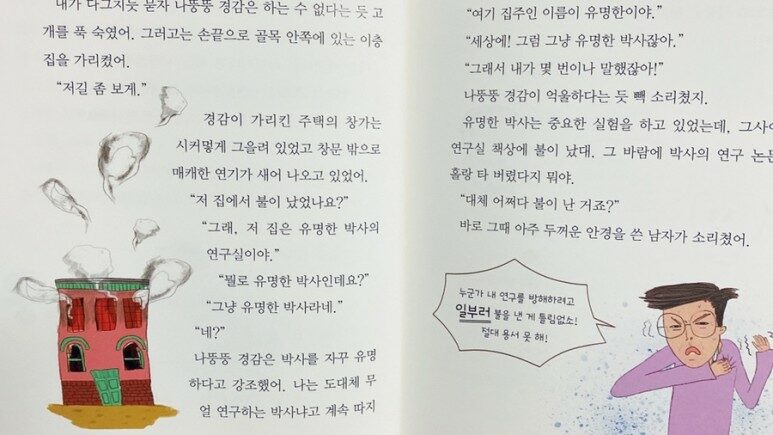 내가 다그치듯 묻자 나뚱뚱 경감은 하는 수 없다는 듯 고
개를 푹 숙였어. 그러고는 손끝으로 골목 안쪽에 있는 이층
집을 가리켰어.
“저길 좀 보게.”
경감이 가리킨 주택의 창가는
시커멓게 그을려 있었고 창문 밖으로
매캐한 연기가 새어 나오고 있었어.
“저 집에서 불이 났었나요?”
“그래, 저 집은 유명한 박사의
연구실이야.”
“뭘로 유명한 박사인데요?”
“그냥 유명한 박사라네.”
“네?”
나뚱뚱 경감은 박사를 자꾸 유명
하다고 강조했어. 나는 도대체 무
얼 연구하는 박사냐고 계속 따지
“여기 집주인 이름이 유명한이야.”
“세상에! 그럼 그냥 유명한 박사잖아.”
“그래서 내가 몇 번이나 말했잖아!”
나뚱뚱 경감이 억울하다는 듯 빽 소리쳤지.
유명한 박사는 중요한 실험을 하고 있었는데, 그사이
연구실 책상에 불이 났대. 그 바람에 박사의 연구 논문
홀랑 타 버렸다지 뭐야.
“대체 어쩌다 불이 난 거죠?”
바로 그때 아주 두꺼운 안경을 쓴 남자가 소리쳤어.
누군가 내 연구를 방해하려고
일부러 불을 낸 게 틀림없소!
절대 용서 못 해!